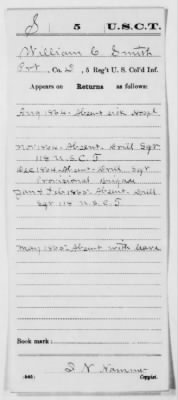 S 5 U.S.C.T.
William C Smith
Pvt, Co. D, 5 Reg't U. S. Col'd Inf.
Appears on Returns as follows:
Aug 1864. Absent sick Hospl
Nov 1864. Absent. Drill Sgt
118 U.S.C.T
Dec 1864. Absent. Drill Sgt
Provisional Brigade
Jan & Feb 1865. Absent. Drill
Sgt 118 U.S.C.T
May 1865. Absent with leave
Book mark:
Copyist.